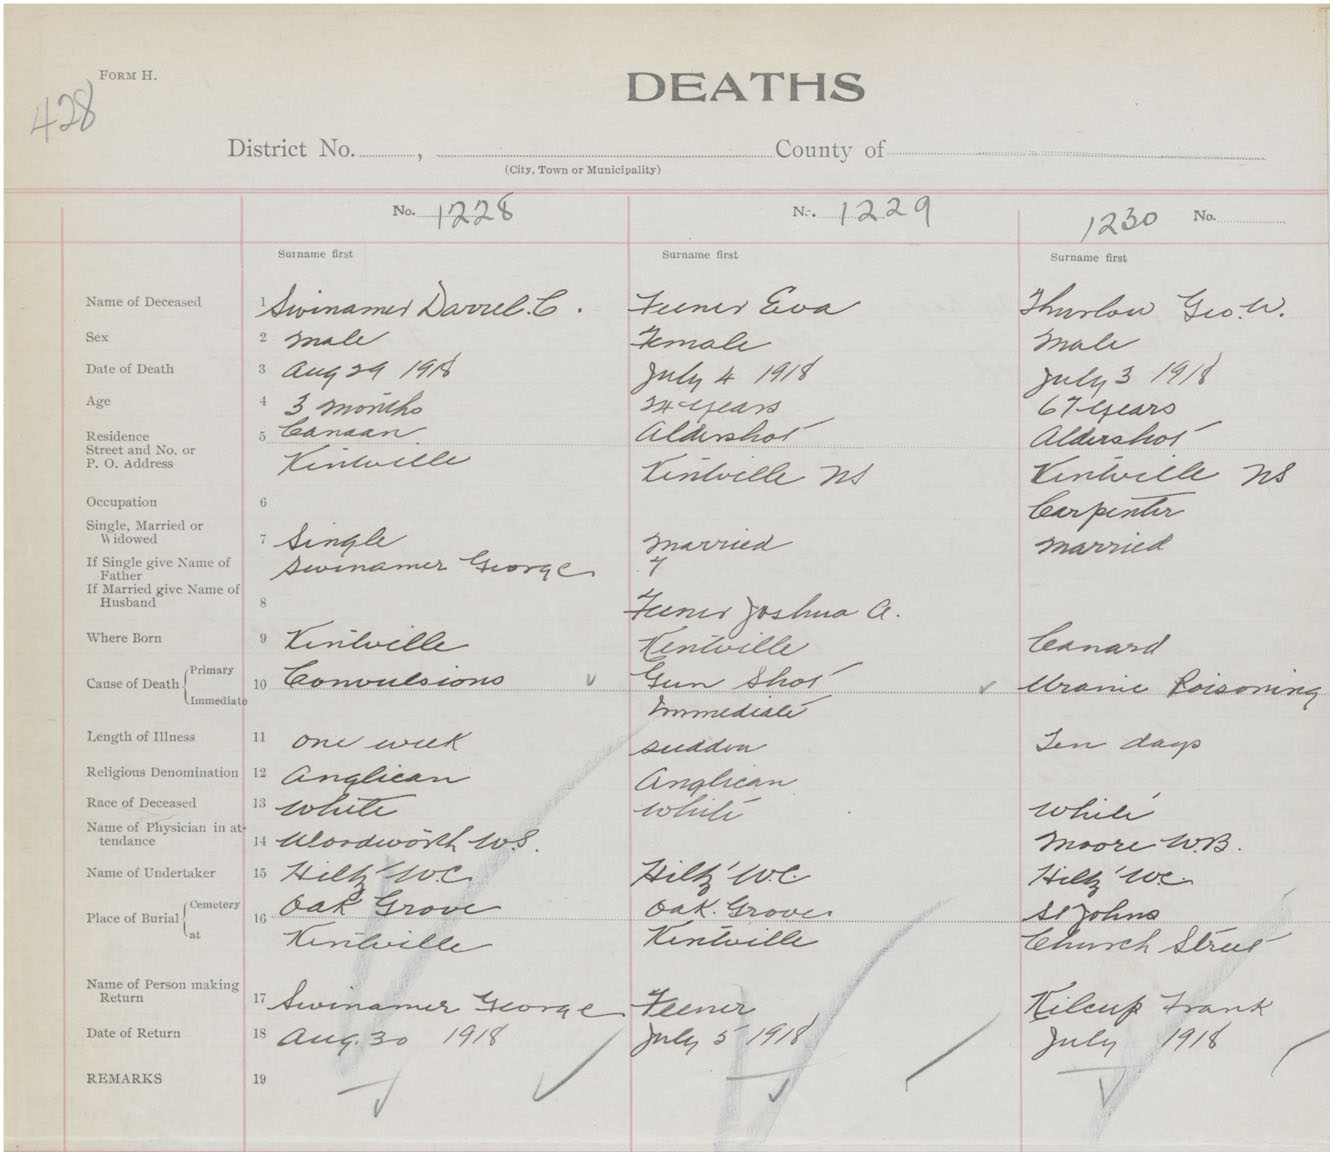 FORM H.
DEATHS
428
District No. , County of
(City, Town or Municipality)
No. 1228 No. 1229 1230 No.
Surname first Surname first Surname first
Name of Deceased 1 Swinamer Darrel. C. Feener Eva Thurlow Geo. W.
Sex 2 Male Female Male
Date of Death 3 Aug 29 1918 July 4 1918 July 3 1918
Age 4 3 months 24 years 67 years
Residence 5 Canaan Aldershot Aldershot
Street and No. or
P. O. Address Kentville Kentville NS Kentville NS
Occupation 6 Carpenter
Single, Married or
Widowed 7 Single Married Married
If Single give Name of
Father Swinamer George
If Married give Name of
Husband 8 Feener Joshua A.
Where Born 9 Kentville Kentville Canard
Cause of Death Primary
10 Convulsions Gun Shot Uranic Poisoning
Immediate Immediate
Length of Illness 11 one week sudden Ten days
Religious Denomination 12 Anglican Anglican
Race of Deceased 13 White White White
Name of Physician in at-
tendance 14 Woodworth W.S. Moore W.B.
Name of Undertaker 15 Hiltz W.C. Hiltz W.C. Hiltz W.C.
Place of Burial Cemetery 16 Oak Grove Oak. Grove St Johns
at Kentville Kentville Church Street
Name of Person making
Return 17 Swinamer George Feener Kilcup Frank
Date of Return 18 Aug. 30 1918 July 5 1918 July 1918
REMARKS 19